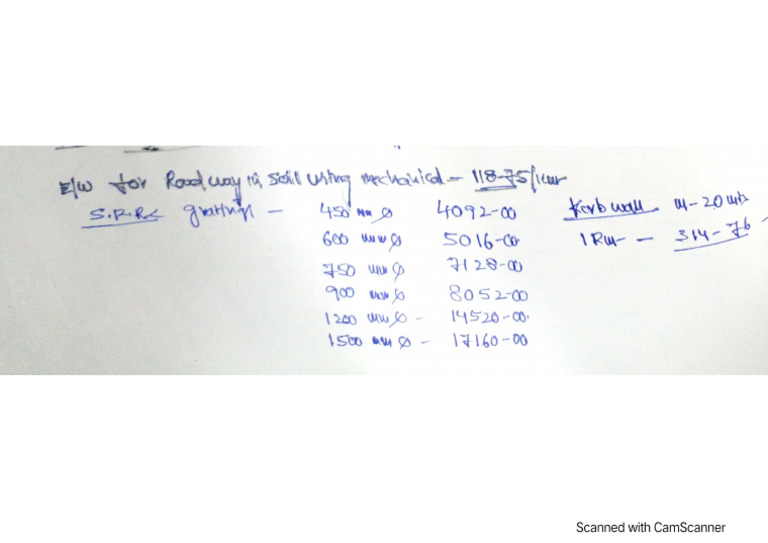 E/W for Roadway in soil using mechanical - 118-75/1cum
S.P.R.C gratings - 450 mm ∅ 4092-00 Kerb wall M-20 mix
600 mm ∅ 5016-00 1 Rm - 314-76
750 mm ∅ 7128-00
900 mm ∅ 8052-00
1200 mm ∅ - 14520-00
1500 mm ∅ - 17160-00
Scanned with CamScanner